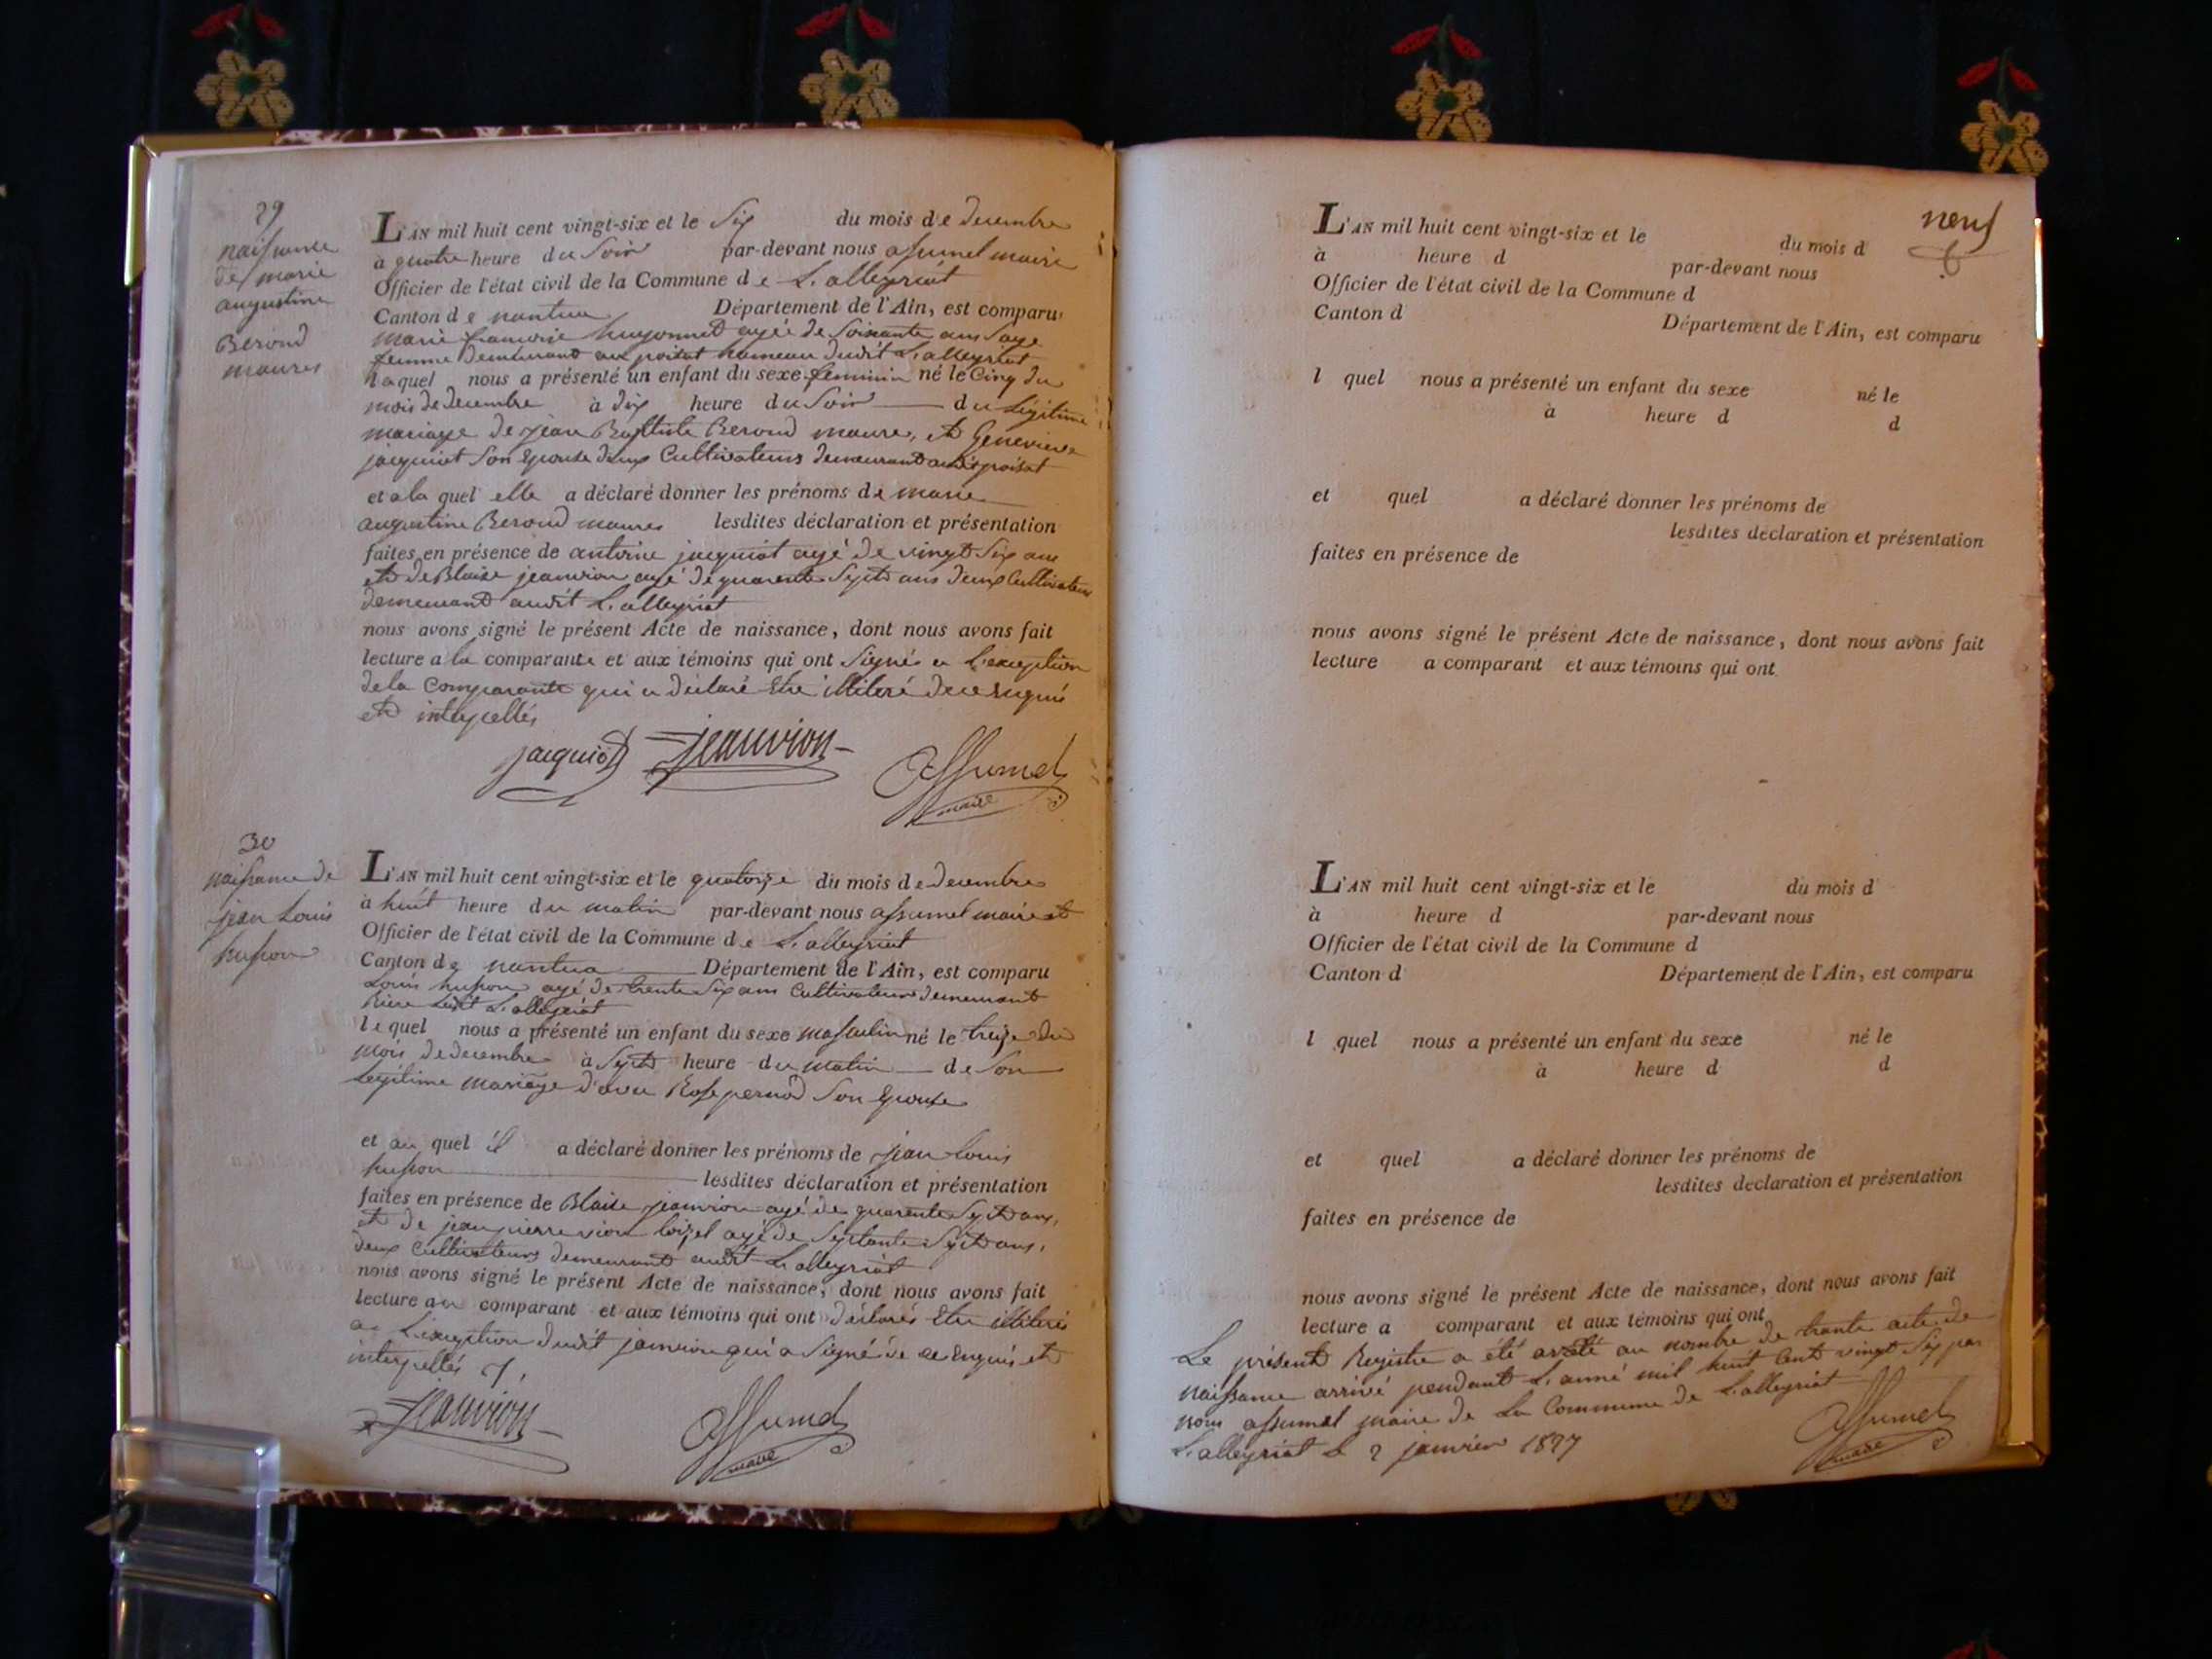 29
naissance
de marie
augustine
Beroud
maures
L'AN mil huit cent vingt-six et le six du mois de decembre
à quatre heure du soir par-devant nous assumel maire
Officier de l'état civil de la Commune de L'alleyriat
Canton de nantua Département de l'Ain, est comparu
marie francoise hugonnet agée de soixante ans sage
femme demeurant au poizat hameau dudit L'alleyriat
laquel nous a présenté un enfant du sexe feminin né le cinq du
mois de decembre à dix heure du soir du légitime
mariage de jean Baptiste Beroud maure, et Genevieve
jacquiot son epouse deux Cultivateurs demeurant audit poizat
et a la quel elle a déclaré donner les prénoms de marie
augustine Beroud maures lesdites déclaration et présentation
faites en présence de antoine jacquiot agé de vingt six ans
et de Blaise jeanvion agé de quarente sept ans deux Cultivateurs
demeurant audit L'alleyriat
nous avons signé le présent Acte de naissance, dont nous avons fait
lecture a la comparante et aux témoins qui ont signés a L'exception
de la Comparante qui a déclaré être illiteré de ce enquis
et interpellés
jacquiot jeanvion assumel
maire
30
naissance de
jean Louis
husson
L'AN mil huit cent vingt-six et le quatorze du mois de decembre
à huit heure du matin par-devant nous assumel maire et
Officier de l'état civil de la Commune de L'alleyriat
Canton de nantua Département de l'Ain, est comparu
Louis husson agé de trente six ans Cultivateur demeurant
Riere Ledit L'alleyriat
lequel nous a présenté un enfant du sexe masculin né le treize du
mois de decembre à sept heure du matin de son
Legitime mariage d'avec Rose pernod son epouse
et au quel il a déclaré donner les prénoms de jean Louis
husson lesdites déclaration et présentation
faites en présence de Blaise jeanvion agé de quarente sept ans,
et de jean pierre vion loizel agé de septante sept ans,
deux Cultivateurs demeurant audit L'alleyriat
nous avons signé le présent Acte de naissance, dont nous avons fait
lecture au comparant et aux témoins qui ont déclarés être illiterés
a L'exception dudit janvion qui a signé de ce enquis et
interpellés
jeanvion assumel
maire
neuf
L'AN mil huit cent vingt-six et le du mois d
à heure d par-devant nous
Officier de l'état civil de la Commune d
Canton d Département de l'Ain, est comparu
l quel nous a présenté un enfant du sexe né le
à heure d d
et quel a déclaré donner les prénoms de
lesdites déclaration et présentation
faites en présence de
nous avons signé le présent Acte de naissance, dont nous avons fait
lecture a comparant et aux témoins qui ont
L'AN mil huit cent vingt-six et le du mois d
à heure d par-devant nous
Officier de l'état civil de la Commune d
Canton d Département de l'Ain, est comparu
l quel nous a présenté un enfant du sexe né le
à heure d d
et quel a déclaré donner les prénoms de
lesdites déclaration et présentation
faites en présence de
nous avons signé le présent Acte de naissance, dont nous avons fait
lecture a comparant et aux témoins qui ont
Le présent Registre a été arété au nombre de trante acte de
naissance arrivé pendant L'anné mil huit Cent vingt six par
nous assumel maire de La Commune de L'alleyriat
L'alleyriat le 2 janvier 1827
assumel
maire